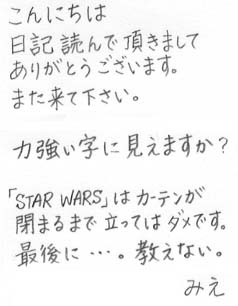 こんにちは
日記読んで頂きまして
ありがとうございます。
また来て下さい。
力強い字に見えますか?
「STAR WARS」はカーテンが
閉まるまで立ってはダメです。
最後に…。教えない。
みえ